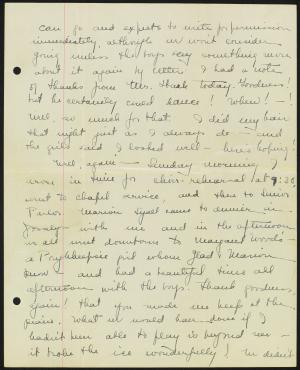 can go and expects to write for permission
immediately, although I won't consider
going unless the boys say something more
about it again by letter. I had a note
of thanks from Mrs. today. Goodness!
but he certainly could dance! Whew! -!
Well, so much for that. I did my hair
that night just as I always do - and
the girls said I looked well - here's hoping!
Well, again - Sunday morning I
arose in time for choir rehearsal at 9:20,
went to chapel service, and then to Senior
Parlor. Marion came to dinner in
with me and in the afternoon
we all went downtown to Margaret Woods -
a Poughkeepsie girl whom Glad & Marion
know - and had a beautiful time all
afternoon with the boys. Thank goodness
again! that you made me keep at the
piano. What we would have done if I
hadn't been able to play is beyond me -
it broke the ice wonderfully! We didn't